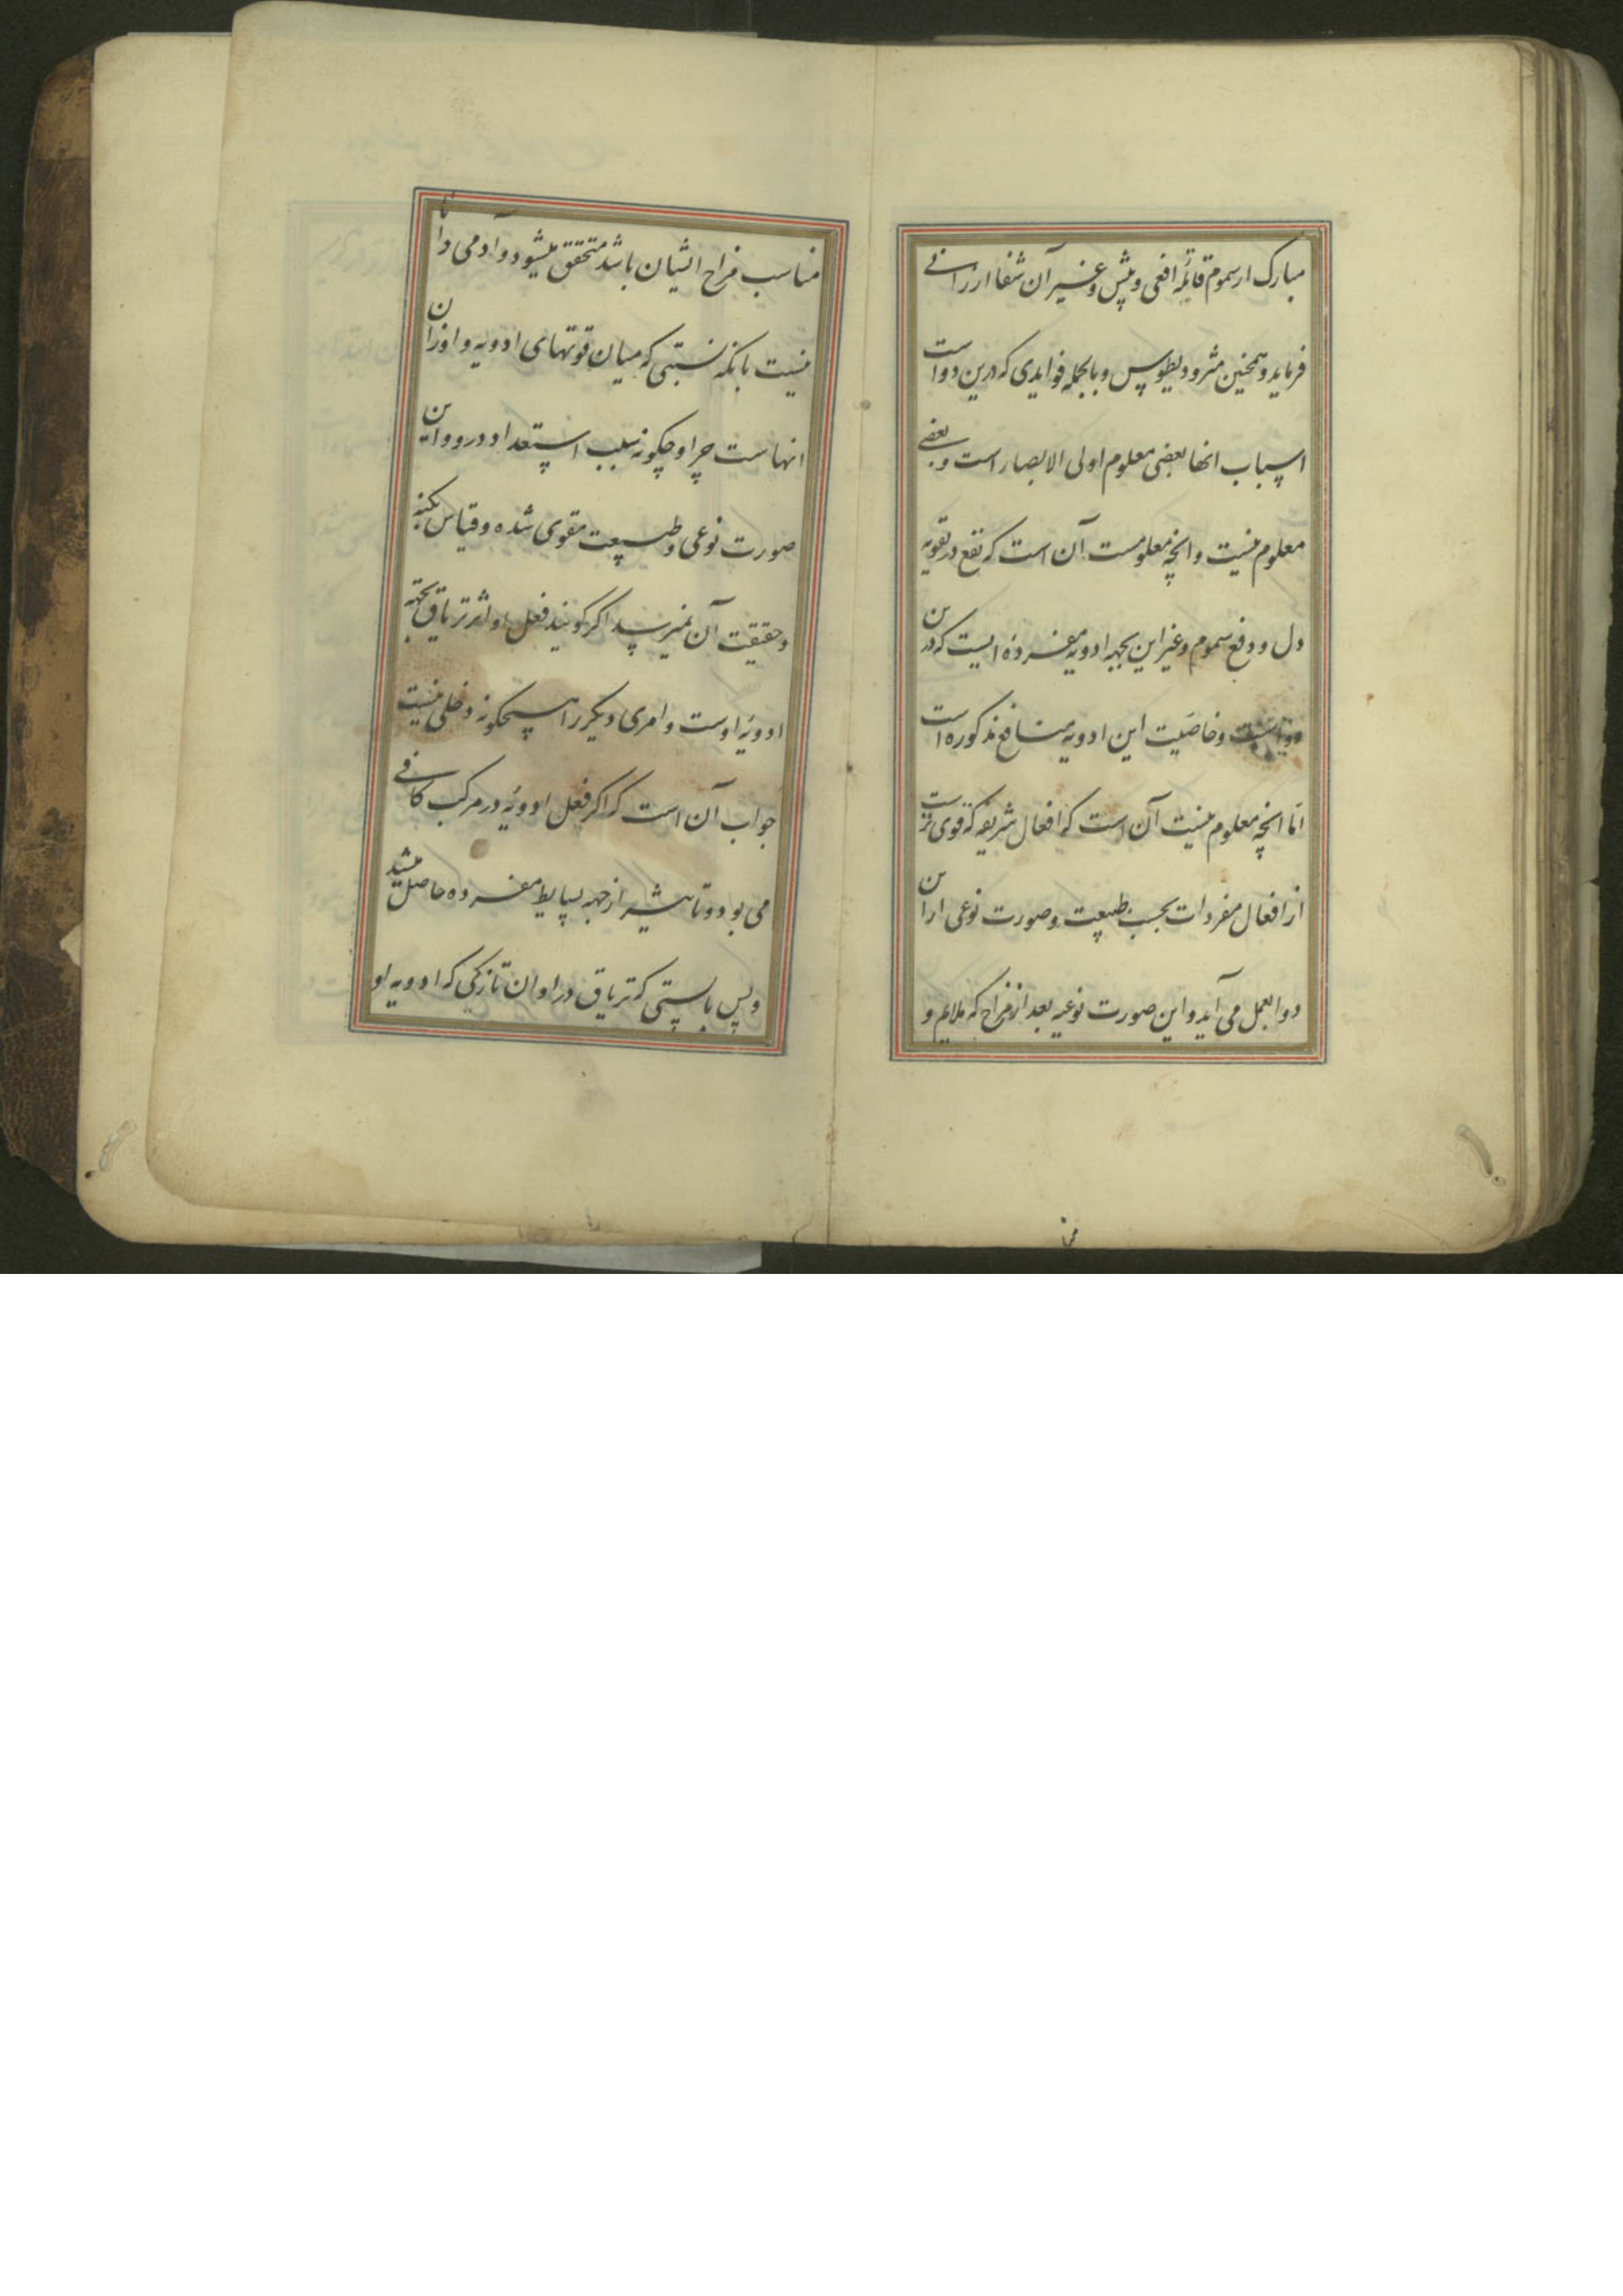 مبارک از سموم قاتله افعی و بیش و غیر آن شفا ارزانی
فرماید و همچنین مثرودیطوس و بالجمله فوایدی که درین دواست
اسباب انها بعضی معلوم اولی الابصار است و بعضی
معلوم نیست و انچه معلومست آن است که نفع در تقویه
دل و دفع سموم و غیر این بجهه ادویه مفرده ایست که درین
دواست و خاصّیت این ادویه منافع مذکوره است
امّا انچه معلوم نیست آن است که افعال شریفه که قوی ترست
از افعال مفردات بحسب طبیعت و صورت نوعی ازین
دوا بعمل می آید و این صورت نوعیه بعد از مزاج که ملایم و
مناسب مزاج انسیان باشد متحقق میشود و آدمی دانا
نیست بانکه نسبتی که میان قوتهای ادویه و اوزان
انهاست چرا و چگونه سبب استعداد ورود این
صورت نوعی و طبیعت مقوی شده و قیاس بکنه
و حقیقت آن نمیرسد اگر گویند فعل او اثر تریاق بجهه
ادویهٔ اوست و امری دیگر را هیچگونه دخلی نیست
جواب آن است که اگر فعل ادویه در مرکب کافی
می بود و تاثیر از جهه بسایط مفرده حاصل میشد
و پس بایستی که تریاق در اوان تازگی که ادویه او